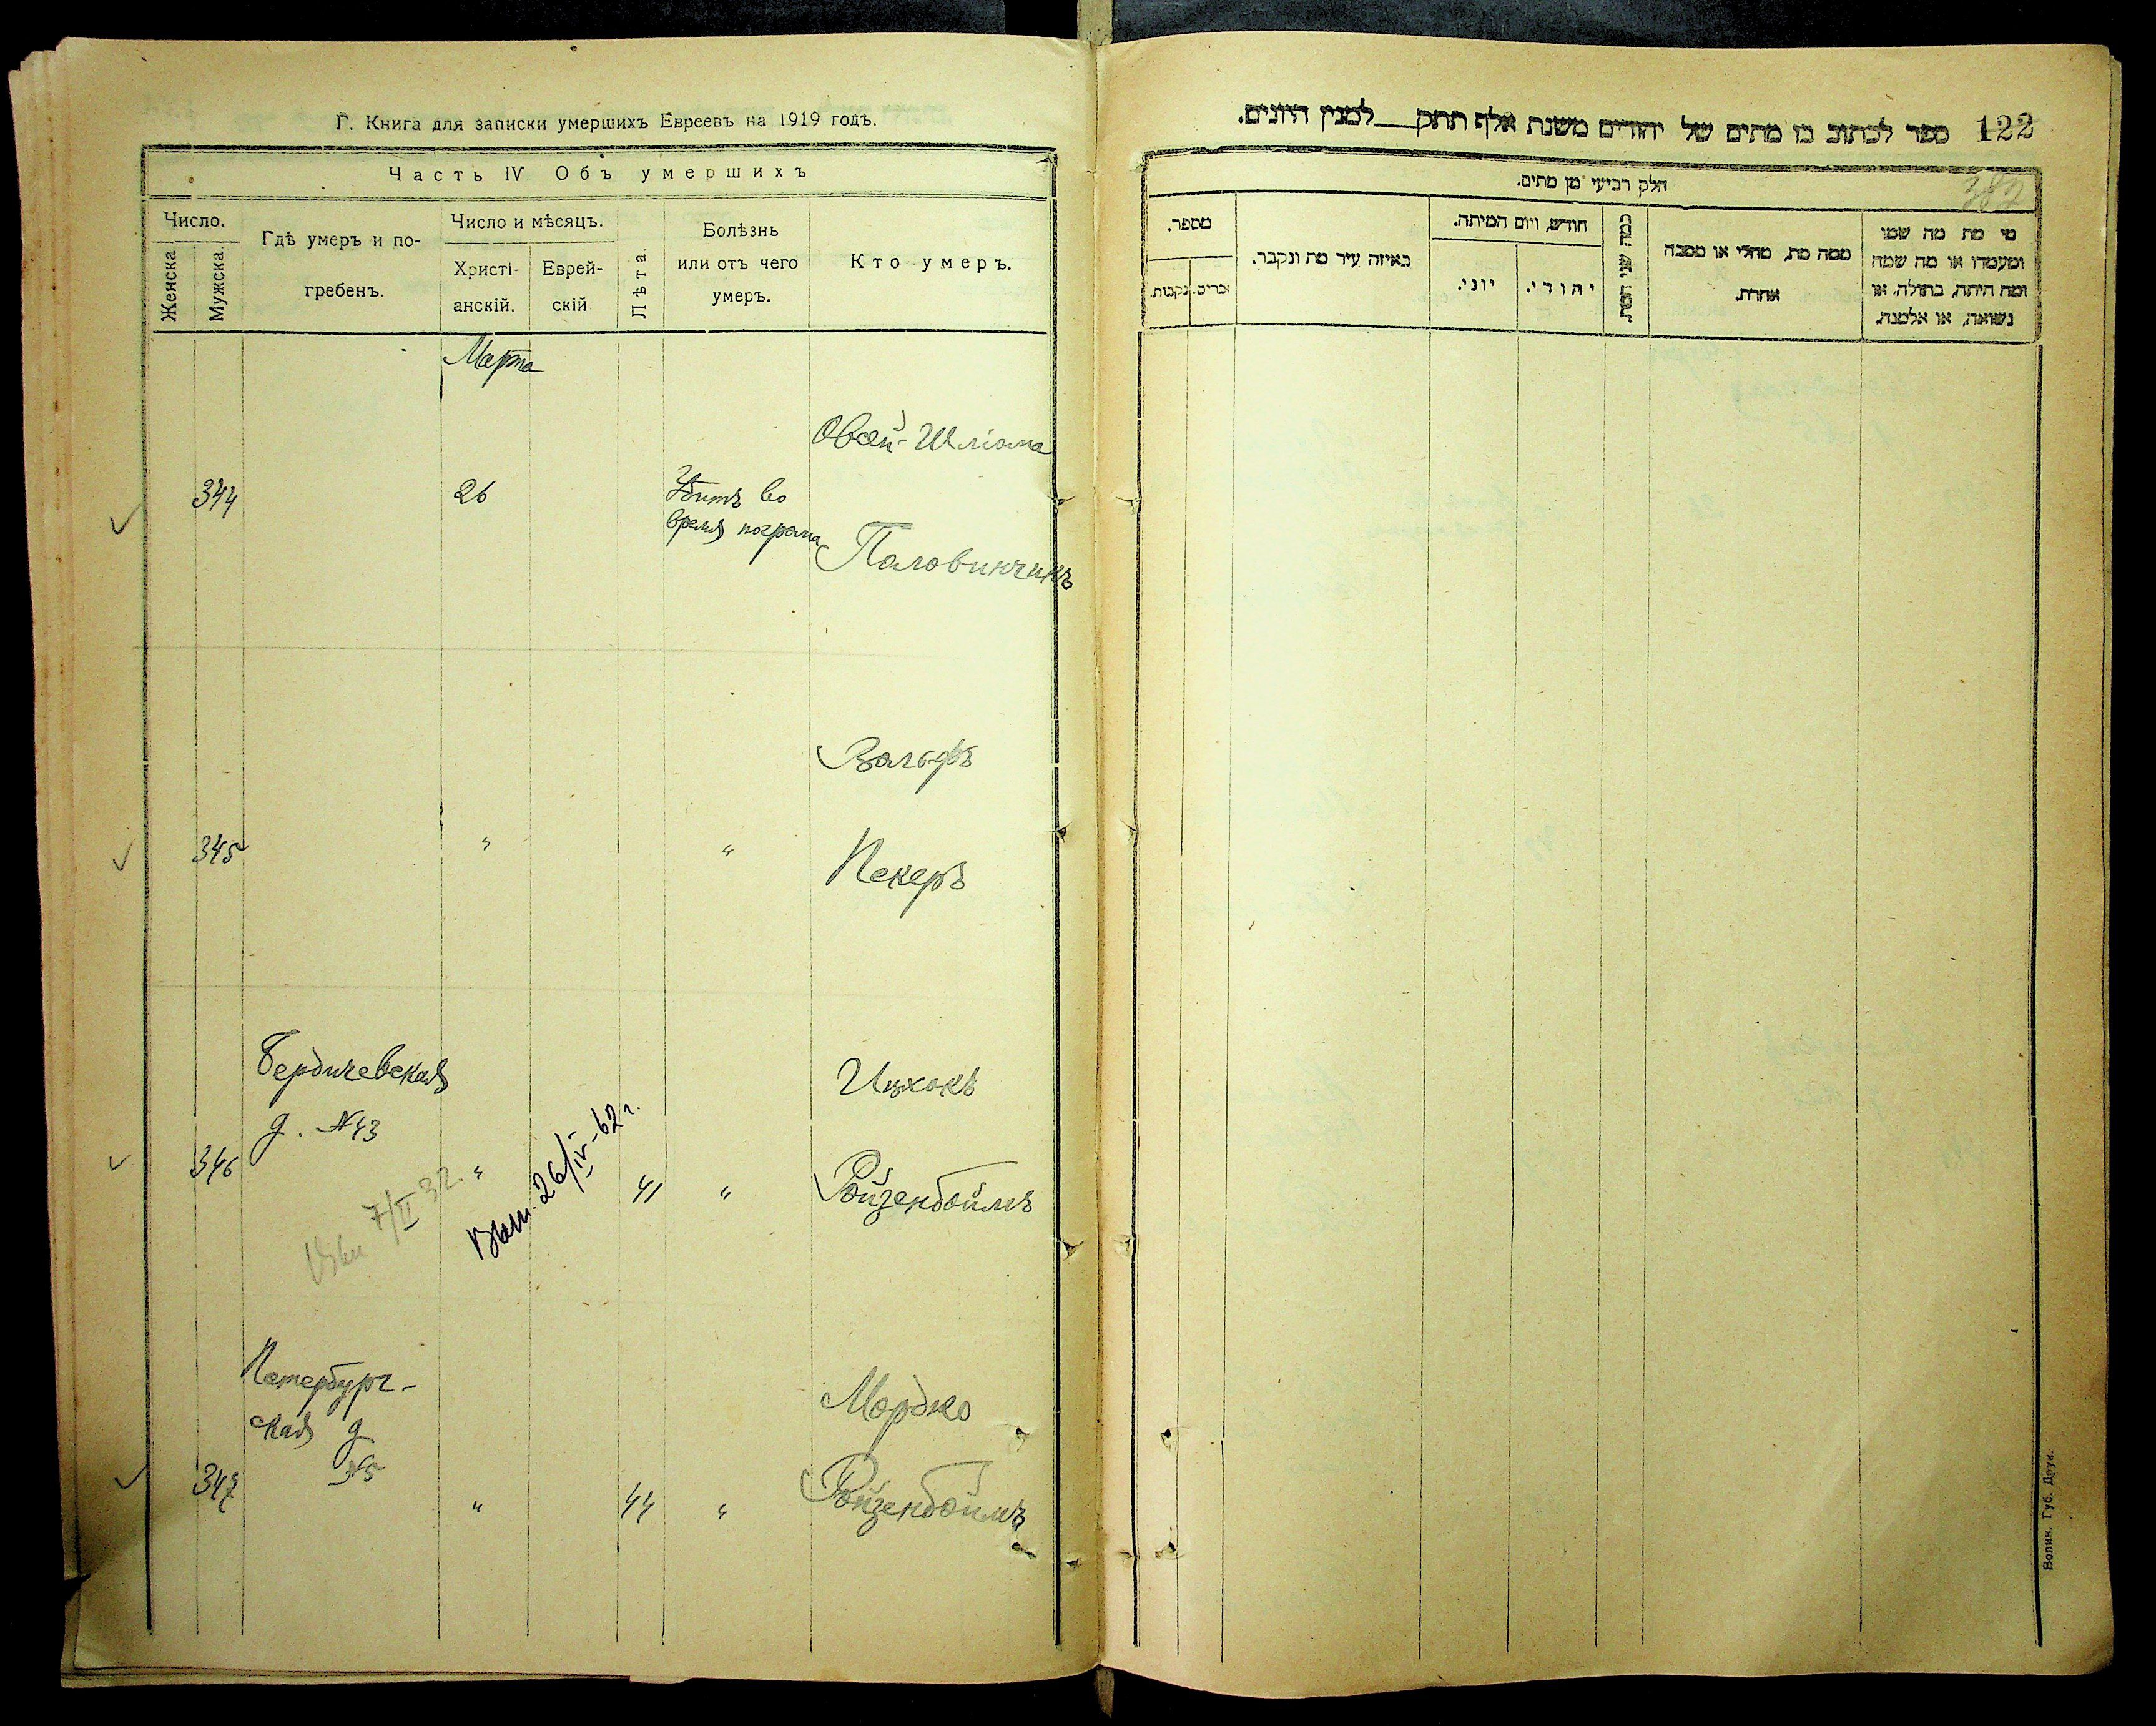 Г. Книга для записки умершихъ Евреевъ на 1919 годъ.
Часть IV Объ умершихъ
Число.
Женска
Мужска
Гдѣ умеръ и по-
гребенъ.
Число и мѣсяцъ.
Христі-
анскій.
Еврей-
скій
Лѣта
Болѣзнь
или отъ чего
умеръ.
Кто умеръ.
Марта
344
26
Убитъ во
время погрома
Овсей-Шліома
Паловинчикъ
345
"
"
Вольфъ
Пекеръ
346
Бердичевская
д. №43
"
41
"
Ицхокъ
Ройзенбоймъ
7/II 32.
Выт. 26/IV-62 г.
347
Петербург-
ская д
№5
"
44
"
Мордко
Ройзенбоймъ
122
ספר לכתוב בו מתים של יהודים משנת אלף תתק___למנין היונים.
חלק רביעי מן מתים.
382
מספר.
זכרים.
נקבות.
באיזה עיר מת ונקבר.
חודש, ויום המיתה.
יוני.
יהודי.
כמה שני המת.
ממה מת, מחלי או מסבה
אחרת.
מי מת מה שמו
ומעמדו או מה שמה
ומה היתה, בתולה. או
נשואה, או אלמנה.
Волин. Губ. Друк.